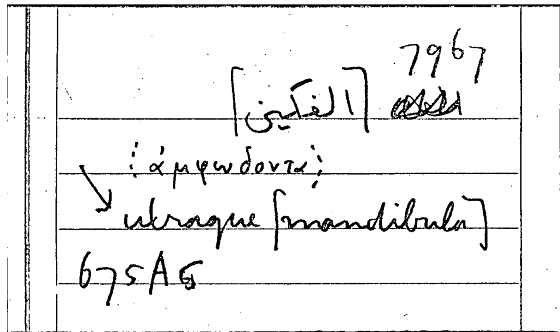 7967
[الفكين]
⋮ἀμφωδοντα⋮
utraque [mandibula]
675A5